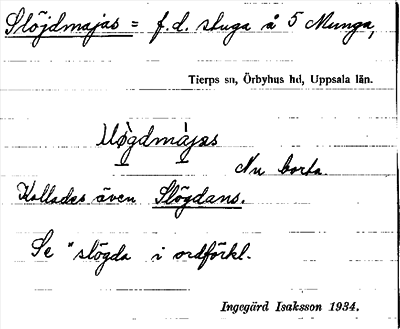 Slöjdmajas = f.d. stuga å 5 Munga,
Tierps sn, Örbyhus hd, Uppsala län.
Nu borta.
Kallades även Slögdans.
Se "slögda i ordförkl.
Ingegärd Isaksson 1934.